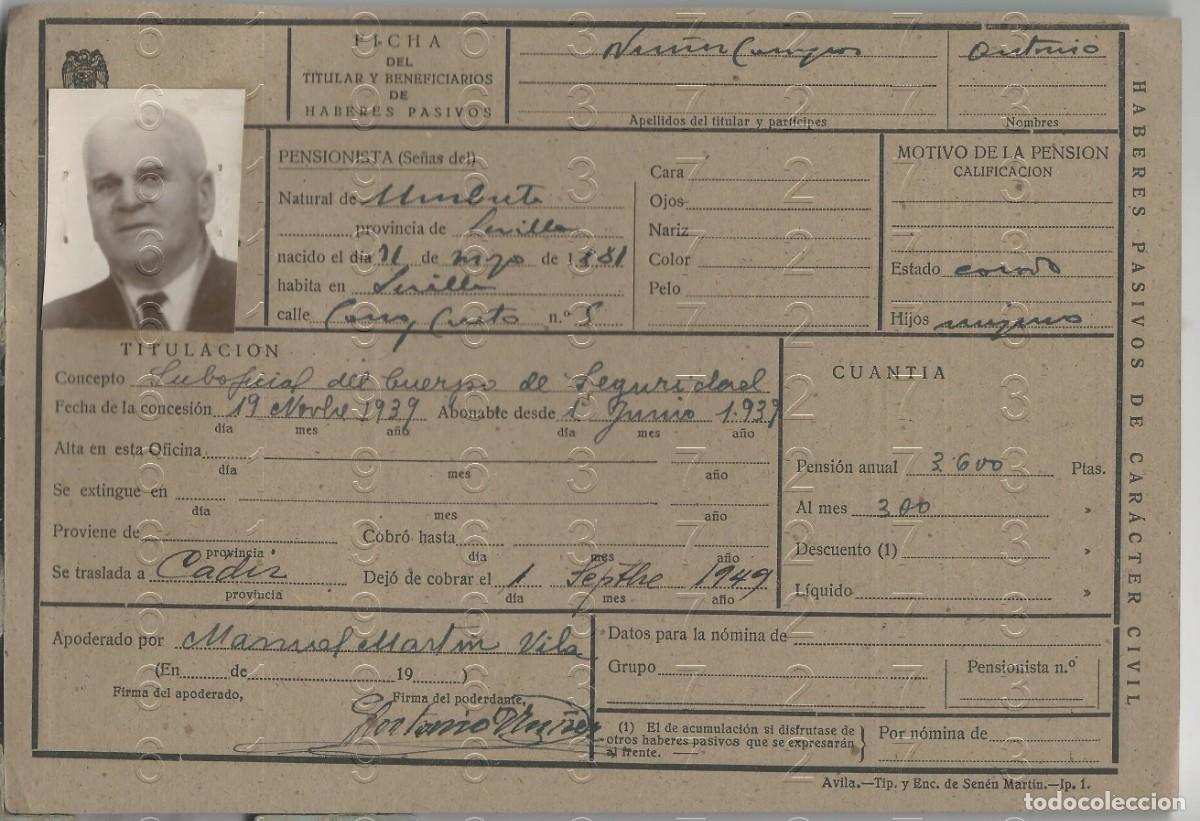 FICHA
DEL
TITULAR Y BENEFICIARIOS
DE
HABERES PASIVOS
Antonio
Apellidos del titular y partícipes
Nombres
HABERES PASIVOS DE CARÁCTER CIVIL
PENSIONISTA (Señas del)
Natural de
provincia de Sevilla
nacido el día de mayo de 1881
habita en Sevilla
calle n.º 5
Cara
Ojos
Nariz
Color
Pelo
MOTIVO DE LA PENSION
CALIFICACION
Estado casado
Hijos ninguno
TITULACION
Concepto Suboficial del Cuerpo de Seguridad
Fecha de la concesión 19 Novbre 1939 Abonable desde 1º Junio 1.939
día mes año día mes año
Alta en esta Oficina
día mes año
Se extingue en
día mes año
Proviene de Cobró hasta
provincia día mes año
Se traslada a Cádiz Dejó de cobrar el 1 Septbre 1949
provincia día mes año
CUANTIA
Pensión anual 3.600 Ptas.
Al mes 300 »
Descuento (1) »
Líquido »
Apoderado por Manuel Martín Vila
(En de 19 )
Firma del apoderado, Firma del poderdante,
Antonio Núñez
Datos para la nómina de
Grupo Pensionista n.º
(1) El de acumulación si disfrutase de
otros haberes pasivos que se expresarán
al frente.
Por nómina de
Avila.—Tip. y Enc. de Senén Martín.—Ip. 1.
todocoleccion